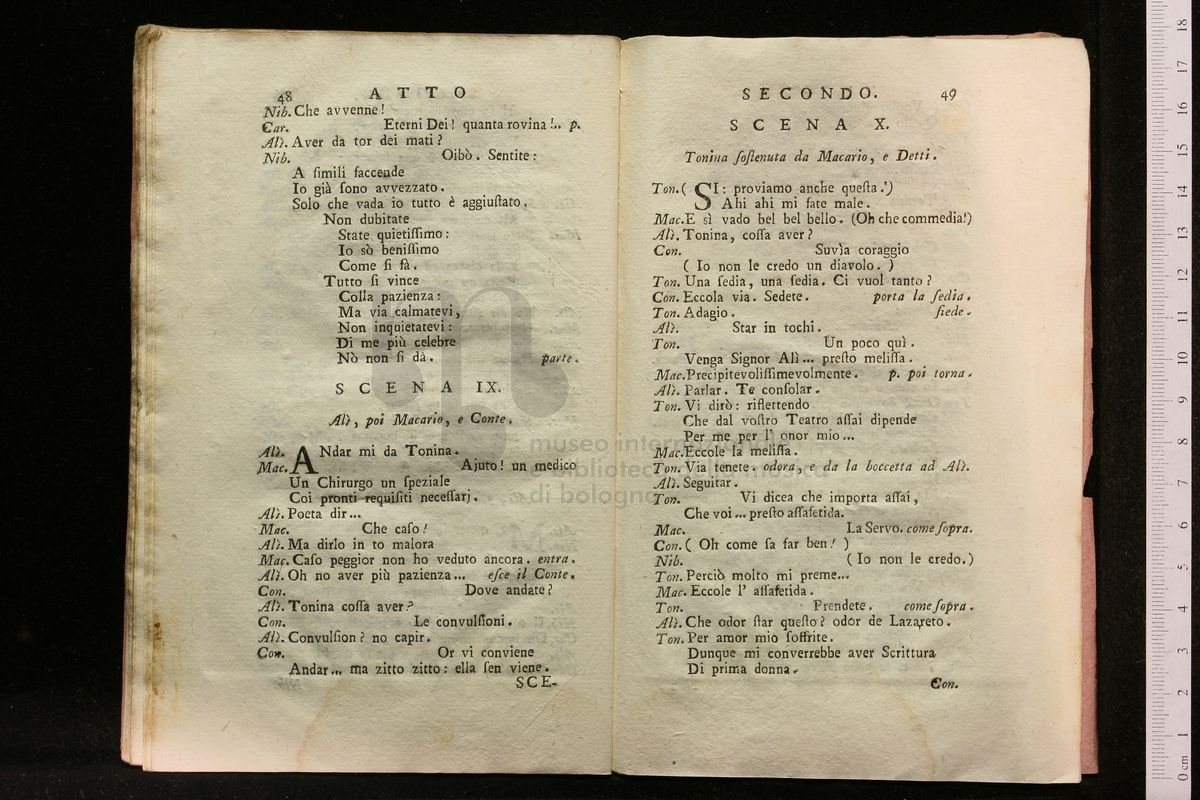 48 ATTO
Nib. Che avvenne!
Car. Eterni Dei! quanta rovina!.. p.
Alì. Aver da tor dei mati?
Nib. Oibò. Sentite:
A ſimili faccende
Io già ſono avvezzato.
Solo che vada io tutto è aggiuſtato.
Non dubitate
State quietiſſimo:
Io sò beniſſimo
Come ſi fà.
Tutto ſi vince
Colla pazienza:
Ma via calmatevi,
Non inquietatevi:
Di me più celebre
Nò non ſi dà. parte.
SCENA IX.
Alì, poi Macario, e Conte.
Alì. ANdar mi da Tonina.
Mac. Ajuto! un medico
Un Chirurgo un ſpeziale
Coi pronti requiſiti neceſſarj.
Alì. Poeta dir...
Mac. Che caſo!
Alì. Ma dirlo in to malora
Mac. Caſo peggior non ho veduto ancora. entra.
Alì. Oh no aver più pazienza... eſce il Conte.
Con. Dove andate?
Alì. Tonina coſſa aver?
Con. Le convulſioni.
Alì. Convulſion? no capir.
Con. Or vi conviene
Andar... ma zitto zitto: ella ſen viene.
SCE-
SECONDO. 49
SCENA X.
Tonina ſoſtenuta da Macario, e Detti.
Ton. ( SI: proviamo anche queſta.)
Ahi ahi mi fate male.
Mac. E sì vado bel bel bello. (Oh che commedia!)
Alì. Tonina, coſſa aver?
Con. Suvìa coraggio
( Io non le credo un diavolo. )
Ton. Una ſedia, una ſedia. Ci vuol tanto?
Con. Eccola via. Sedete. porta la ſedia.
Ton. Adagio. ſiede.
Alì. Star in tochi.
Ton. Un poco quì.
Venga Signor Alì... preſto meliſſa.
Mac. Precipitevoliſſimevolmente. p. poi torna.
Alì. Parlar. Te conſolar.
Ton. Vi dirò: riflettendo
Che dal voſtro Teatro aſſai dipende
Per me per l' onor mio...
Mac. Eccole la meliſſa.
Ton. Via tenete. odora, e da la boccetta ad Alì.
Alì. Seguitar.
Ton. Vi dicea che importa aſſai,
Che voi... preſto aſſafetida.
Mac. La Servo. come ſopra.
Con. ( Oh come ſa far ben! )
Nib. ( Io non le credo.)
Ton. Perciò molto mi preme...
Mac. Eccole l' aſſafetida.
Ton. Prendete. come ſopra.
Alì. Che odor ſtar queſto? odor de Lazareto.
Ton. Per amor mio ſoffrite.
Dunque mi converrebbe aver Scrittura
Di prima donna.
Con.
museo internazionale
biblioteca della musica
di bologna
0 cm 1 2 3 4 5 6 7 8 9 10 11 12 13 14 15 16 17 18